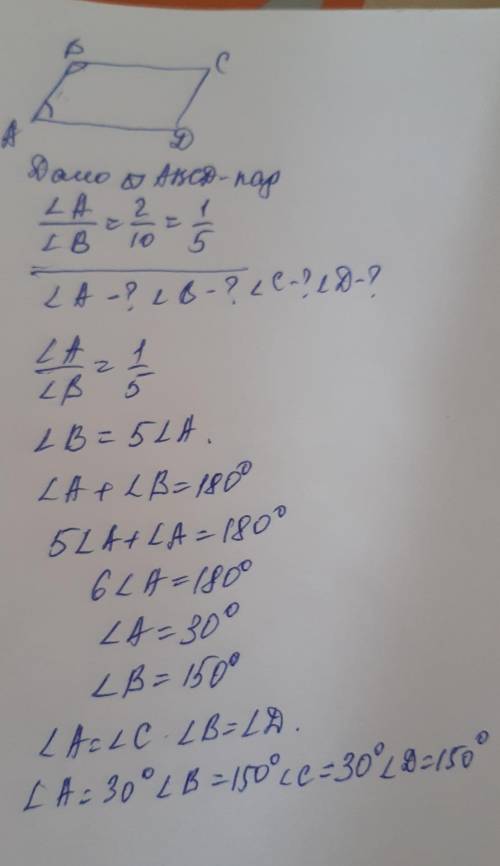 B
C
A
D
Дано ▱ ABCD-пар
∠A/∠B = 2/10 = 1/5
∠A-? ∠B-? ∠C-? ∠D-?
∠A/∠B = 1/5
∠B = 5∠A.
∠A + ∠B = 180°
5∠A + ∠A = 180°
6∠A = 180°
∠A = 30°
∠B = 150°
∠A = ∠C · ∠B = ∠D.
∠A = 30° ∠B = 150° ∠C = 30° ∠D = 150°